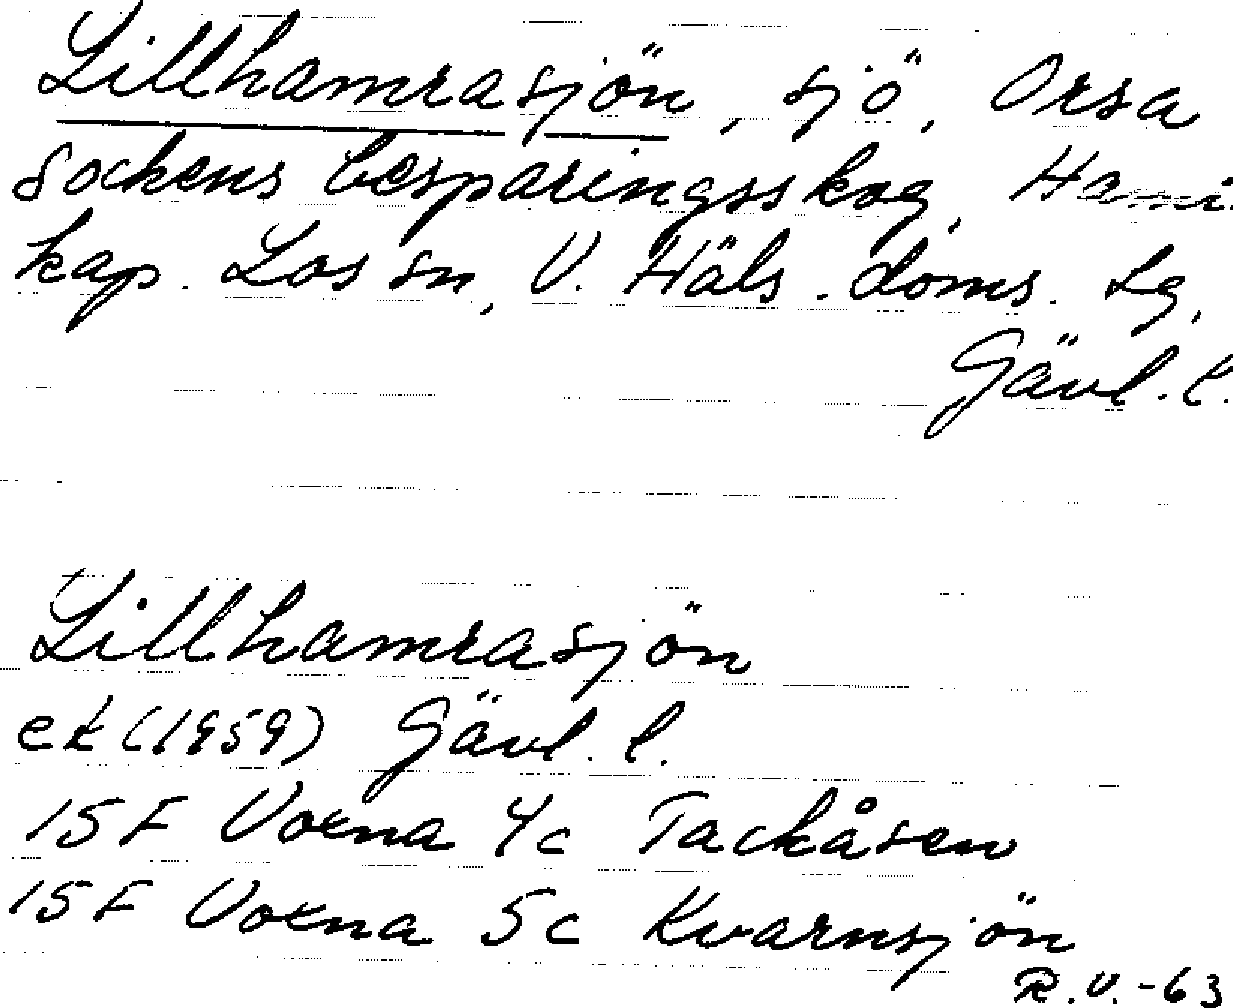 Lillhamrasjön, sjö, Orsa
sockens besparingsskog,
kap. Los sn, V. Häls. doms. lg,
Gävl. l.
Lillhamrasjön
ek (1959) Gävl. l.
15 F Voxna 4c Tackåsen
15 F Voxna 5c Kvarnsjön
R.V.-63